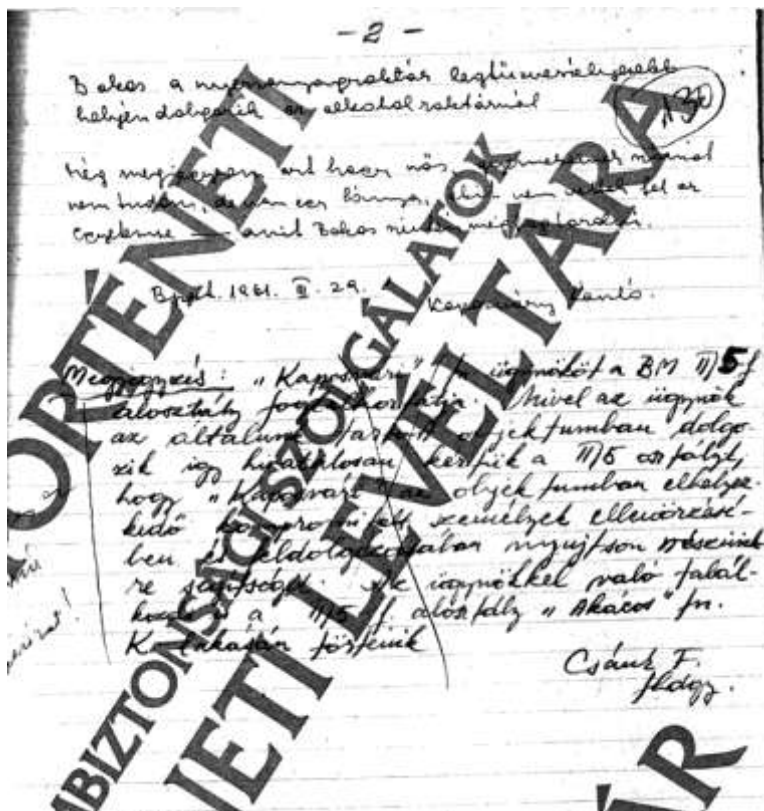 - 2 -
130
Bakos a legtűzveszélyesebb
helyén dolgozik az alkohol raktárnál
Még megjegyzem azt hogy nős, gyermekeinek számát
nem tudom, de van egy lánya, akit nem vettek fel az
Egyetemre amit Bakos
Bpest. 1961. 29. Kaposvári
Megjegyzés: "Kaposvári" fn. ügynököt a BM II/5 f
alosztály foglalkoztatja. Mivel az ügynök
az általunk tartott objektumban dolgo-
zik így hivatalosan kérjük a II/5 osztályt,
hogy "Kaposvári" az objektumban elhelyez-
kedő kompromitált személyek ellenőrzésé-
ben és feldolgozásában nyujtson részünk-
re segítséget. Az ügynökkel való talál-
kozás a II/5 f alosztály "Akácos" fn.
K. lakásán történik
Csánk F.
fhdgy.
TÖRTÉNETI
ÁLLAMBIZTONSÁGI SZOLGÁLATOK
TÖRTÉNETI LEVÉLTÁRA